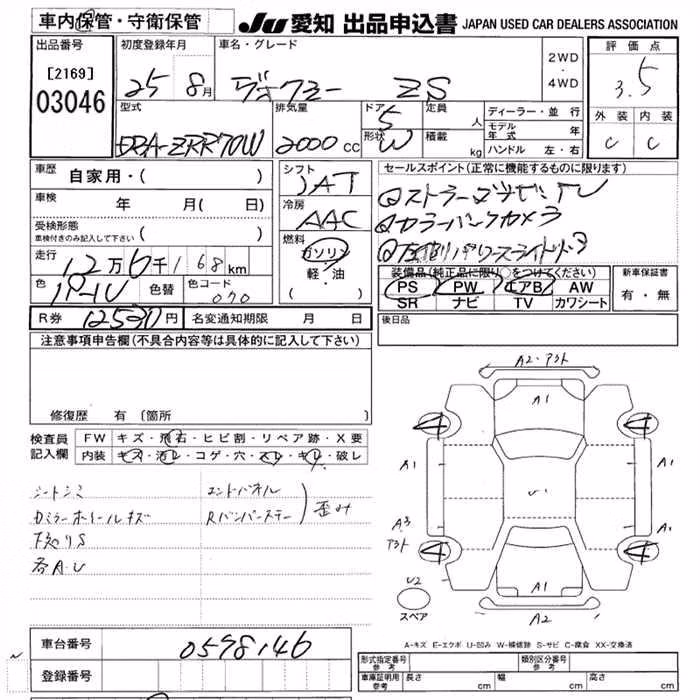 車内保管・守衛保管 JU 愛知 出品申込書 JAPAN USED CAR DEALERS ASSOCIATION
出品番号 初度登録年月 車名・グレード 2WD・4WD 評価点
[2169] 25 8月 ヴォクシー ZS 3.5
03046
型式 排気量 ドア 定員 ディーラー・並行 外装 内装
DBA-ZRR70W 2000cc 5 人 モデル年式 年 C C
形状 W 積載 kg ハンドル 左・右
車歴 自家用・( ) シフト セールスポイント(正常に機能するものに限ります)
車検 年 月( 日) IAT
受検形態 冷房 AAC
車検付きのみ記入して下さい ( )
②カラーバックカメラ
走行 12万6千168km 燃料 ガソリン・軽・油
色 パール 色替 色コード 070
装備品(純正品に限り○をつけてください) 新車保証書
PS PW エアB AW 有・無
SR ナビ TV カワシート
R券 12530円 名変通知期限 月 日 後日品
注意事項申告欄(不具合内容等は具体的に記入して下さい)
修復歴 有 (箇所 )
検査員記入欄 FW キズ・飛石・ヒビ割・リペア跡・X要
内装 キズ・汚レ・コゲ・穴・スレ・キレ・破レ
シートシミ エンドパネル
カミラーホイールキズ Rバンパーステー 歪み
下廻りS
各A・U
A2・アクト
A1
4 4
A1 U1 A1
A3 アクト A1
4 4
U2 A1
スペア A2
A-キズ E-エクボ U-凹み W-補修跡 S-サビ C-腐食 XX-交換済
車台番号 0598146
登録番号
形式指定番号 参考 類別区分番号 参考
車庫証明用 参考 長さ cm 幅 cm 高さ cm